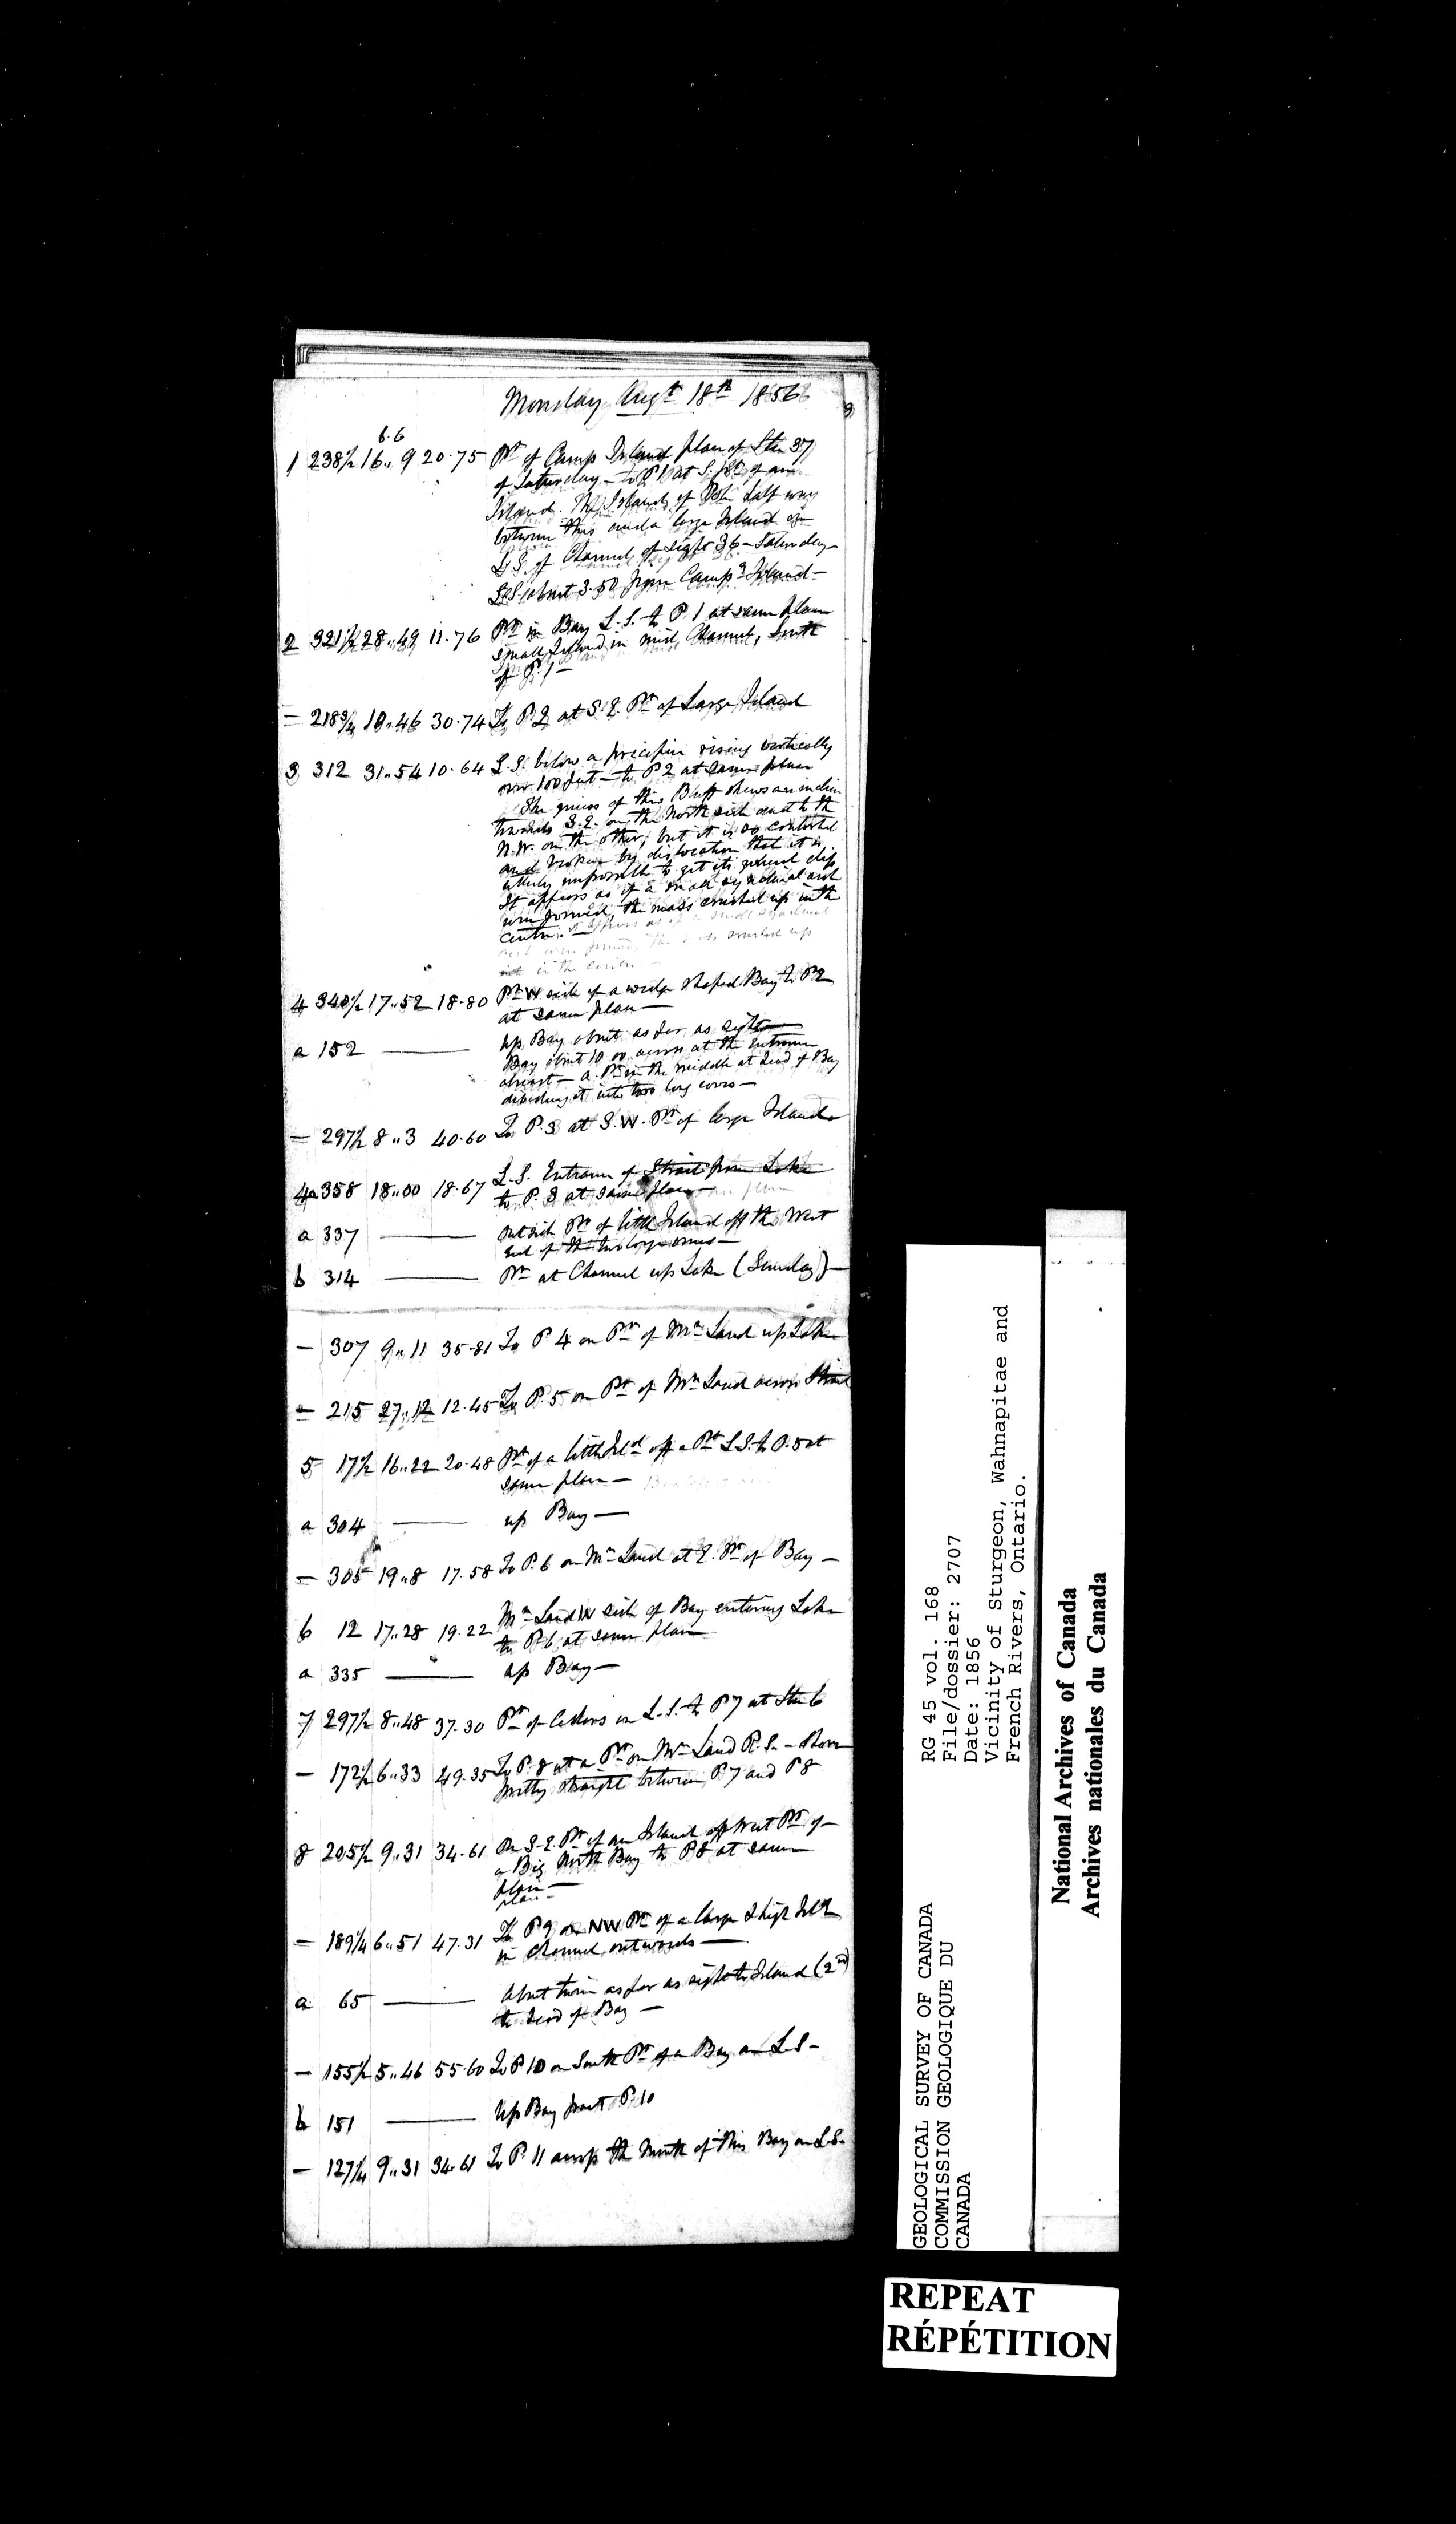 Monday Augt 18th 1856
6.6
1 238½ 16.. 9 20.75 Pt of Camp Island place of Stn 37
of Saturday – to P 1 at S. Pt of an
Island. Island of half way
between this and a large Island on
L.S. of Channel of sight 36 – Saturday –
about 3.50 from Camp Island –
2 321½ 28..49 11.76 Pt in Bay L.S. to P. 1 at same place
small Island in mid Channel, South
of P. 1 –
– 218¾ 10..46 30.74 To P. 2 at S.E. Pt of Large Island
3 312 31..54 10.64 L.S. below a precipice rising vertically
over 100 feet – to P 2 at same place
The gneiss of this Bluff shews an incline
towards S.E. on the North side and to the
N.W. on the other, but it is so contorted
and broken by dislocation that it is
utterly impossible to get its general dip
It appears as if a small synclinal and
were formed, the mass crushed up in the
centre. –
in the centre –
4 340½ 17..52 18.80 Pt W side of a wedge shaped Bay to P. 2
at same place –
a 152 –– up Bay about as far as sight
Bay about 10.00 across at the Entrance
about – a Pt in the middle at head of Bay
dividing it into two long coves –
– 297½ 8..3 40.60 To P. 3 at S.W. Pt of large Island
4a 358 18..00 18.67 L.S. Entrance of Strait from Lake
to P. 3 at same place –
a 337 –– outside Pt of little Island off the West
end of the two large ones –
b 314 –– Pt at Channel up Lake (Sunday) –
– 307 9..11 35.81 To P 4 on Pt of Mn Land up Lake
– 215 27..12 12.45 To P. 5 on Pt of Mn Land across Strait
5 17½ 16..22 20.48 Pt of a little Isld off a Pt L.S. to P. 5 at
same place –
a 304 –– up Bay –
– 305 19..8 17.58 To P. 6 on Mn Land at E. Pt of Bay –
6 12 17..28 19.22 Mn Land W side of Bay entering Lake
to P. 6 at same place
a 335 –– up Bay –
7 297½ 8..48 37.30 Pt of Cedars on L.S. to P 7 at Stn 6
– 172½ 6..33 49.35 To P. 8 at a Pt on Mn Land R.S. – Shore
pretty straight between P 7 and P 8
8 205½ 9..31 34.61 On S-E. Pt of an Island off West Pt of
a Big North Bay to P 8 at same
place –
place –
– 189¼ 6..51 47.31 To P 9 on NW Pt of a large & high Isld
in Channel outwards –
a 65 –– About twice as far as sight to Island (2nd)
to head of Bay –
– 155½ 5..46 55.60 To P 10 on South Pt of a Bay on L.S –
b 151 –– Up Bay past P. 10
– 127¼ 9..31 34.61 To P. 11 across the Mouth of this Bay on L.S.
GEOLOGICAL SURVEY OF CANADA
COMMISSION GEOLOGIQUE DU
CANADA
RG 45 vol. 168
File/dossier: 2707
Date: 1856
Vicinity of Sturgeon, Wahnapitae and
French Rivers, Ontario.
National Archives of Canada
Archives nationales du Canada
REPEAT
RÉPÉTITION